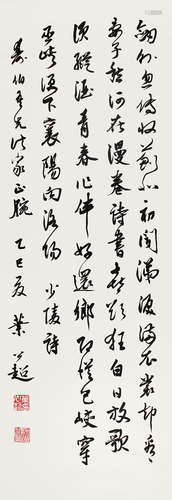 劍外忽傳收薊北初聞涕淚滿衣裳却看
妻子愁何在漫卷詩書喜欲狂白日放歌
須縱酒青春作伴好還鄉即從巴峽穿
巫峽便下襄陽向洛陽 少陵詩
壽伯吾兄法家正腕 乙巳夏 葉公超